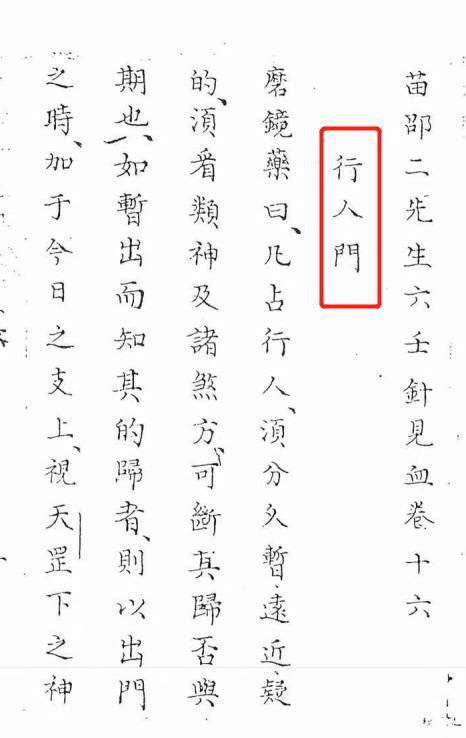 苗邵二先生六壬針見血卷十六
行人門
磨鏡藥曰、凡占行人、湏分久暫遠近疑
的、湏看類神及諸煞方、可斷其歸否與
期也、如暫出而知其的歸者、則以出門
之時、加于今日之支上、視天罡下之神